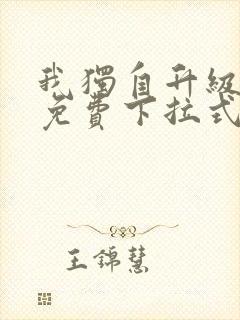 我獨自升級
免費下拉式
王錦慧